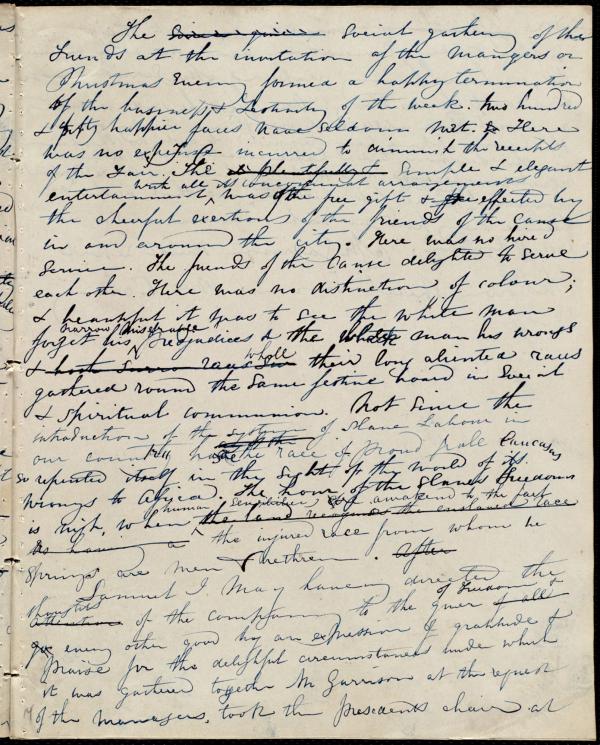 The Social gathering of the
Friends at the invitation of the managers on
Christmas Evening formed a happy termination
of the business & festivity of the week. two hundred
& fifty happier faces have seldom met. Here
was no expense incurred to diminish the receipts
of the Fair. The simple & elegant
entertainment, with all its arrangements was the free gift & effected by
the cheerful exertions of the friends of the Cause
in and around the city. Here was no hired
Service. The friends of the Cause delighted to serve
each other. Here was no distinction of colour;
& beautiful it was to see the white man
forget his narrow prejudices & the black man his wrongs
& whole their long alienated races
gathered round the same festive board in social
& spiritual communion. Not since the
introduction of the system of Slave Labour in
our country has the race & proud pale Caucasus
so repented itself in the sight of the world of its
wrongs to Africa. The hour of the slaves freedom
is nigh, when human awakened to the fact
the injured race from whom he
springs are men & brethren. After
Samuel J. May having directed the
thoughts of the company to the giver of freedom &
every other good by an expression of gratitude &
praise for the delightful circumstances under which
it was gathered together Mr Garrison at the request
of the managers, took the presidents chair at